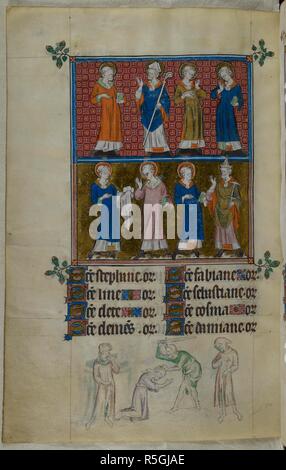 Sce stephane. or.
Sce line or.
Sce clete or.
Sce clemēs. or.
Sce fabiane. or.
Sce sebastiane. or.
Sce cosma or.
Sce damiane. or.
alamy
Image ID: R5GJAE
www.alamy.com